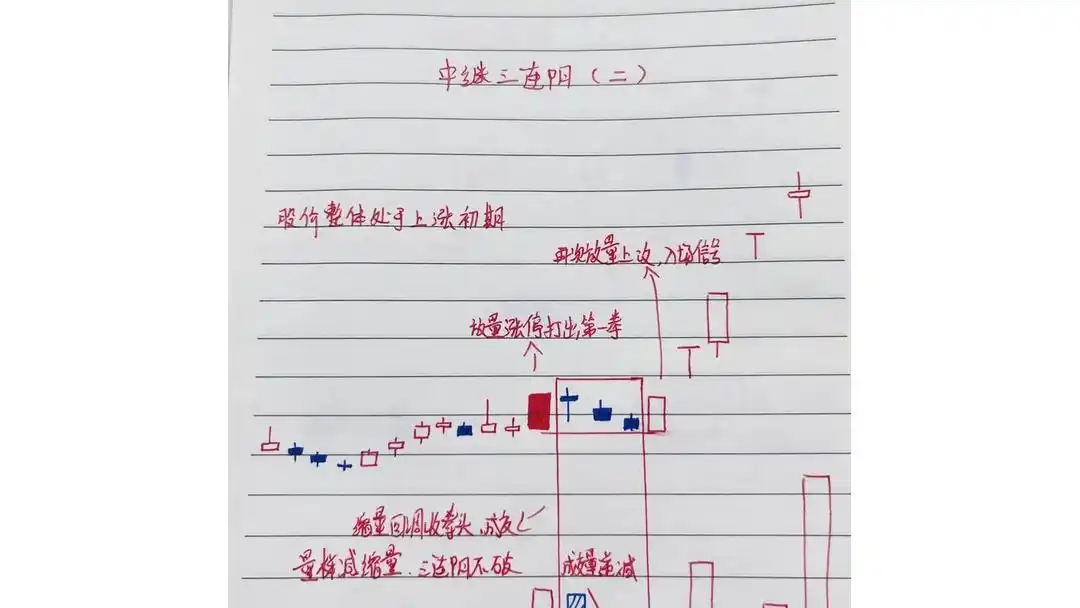 中继三连阴（二）
股价整体处于上涨初期
再次放量上攻，入场信号
放量涨停打出第一拳
缩量回调收拳头，成交
量梯减缩量.三连阴不破
成交量递减